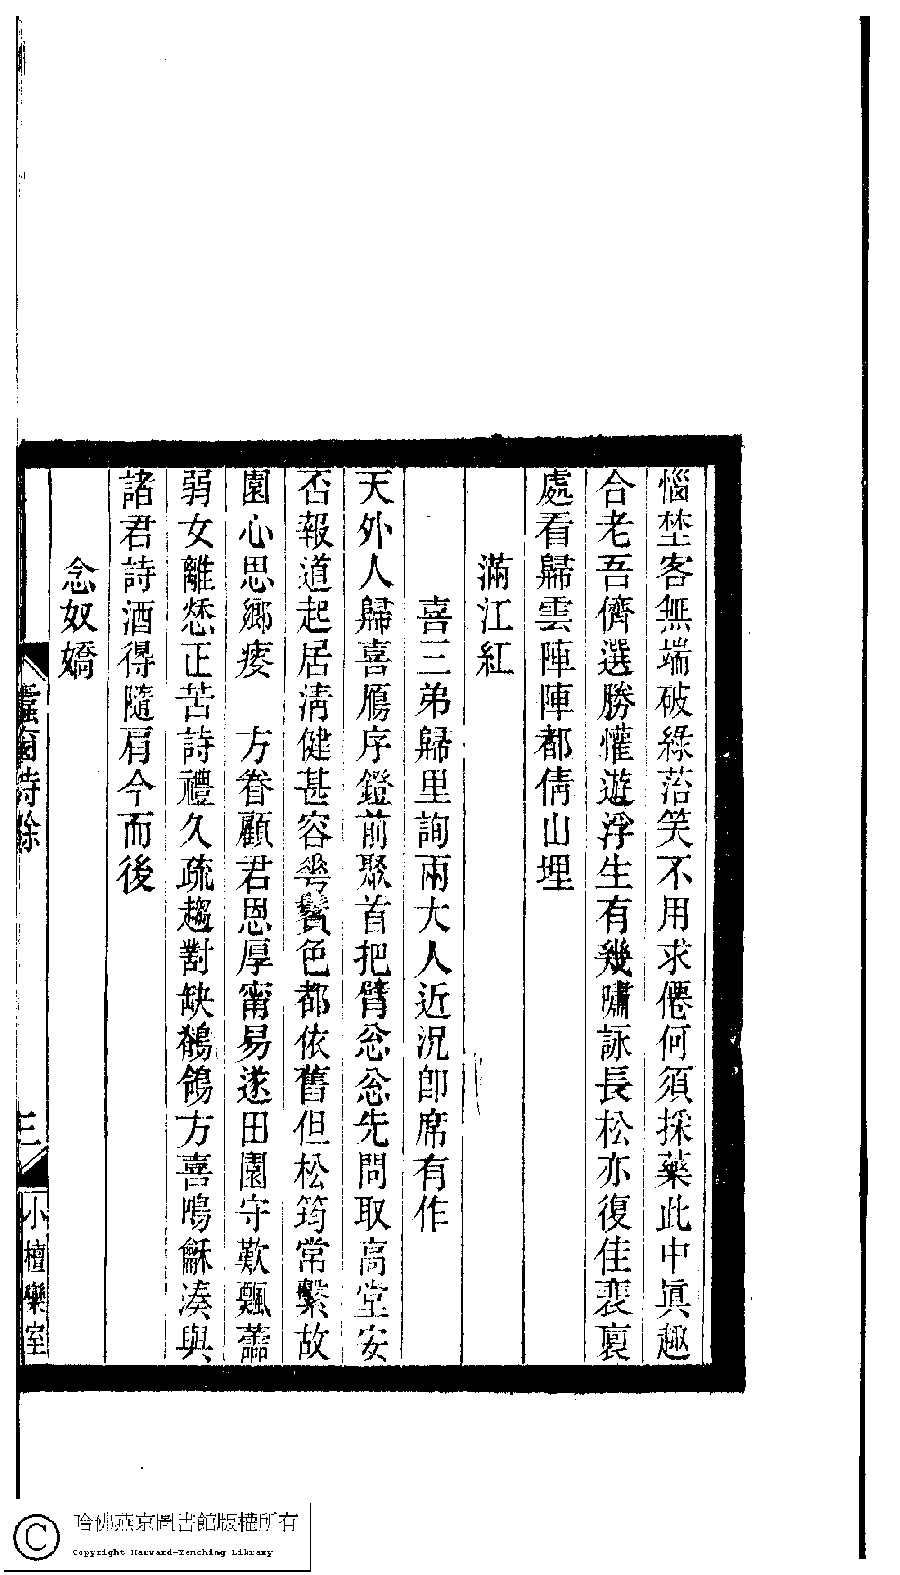 惱埜客無端破綠萿笑不用求僊何須採藥此中眞趣
合老吾儕選勝懽遊浮生有幾嘯詠長松亦復佳裴裒
處看歸雲陣陣都倩山埋
滿江紅
喜三弟歸里詢兩大人近況卽席有作
天外人歸喜鴈序鐙前聚首把臂忩忩先問取高堂安
否報道起居淸健甚容㠭鬢色都依舊但松筠常繫故
園心思鄉瘘　方眷顧君恩厚甯易遂田園守歎飄蘦
弱女離㤖正苦詩禮久疏趨對缺鶺鴒方喜鳴龢凑與
諸君詩酒得隨肩今而後
念奴嬌
蠹窗詩餘
三
小檀欒室
哈佛燕京圖書館版權所有
Copyright Harvard-Yenching Library